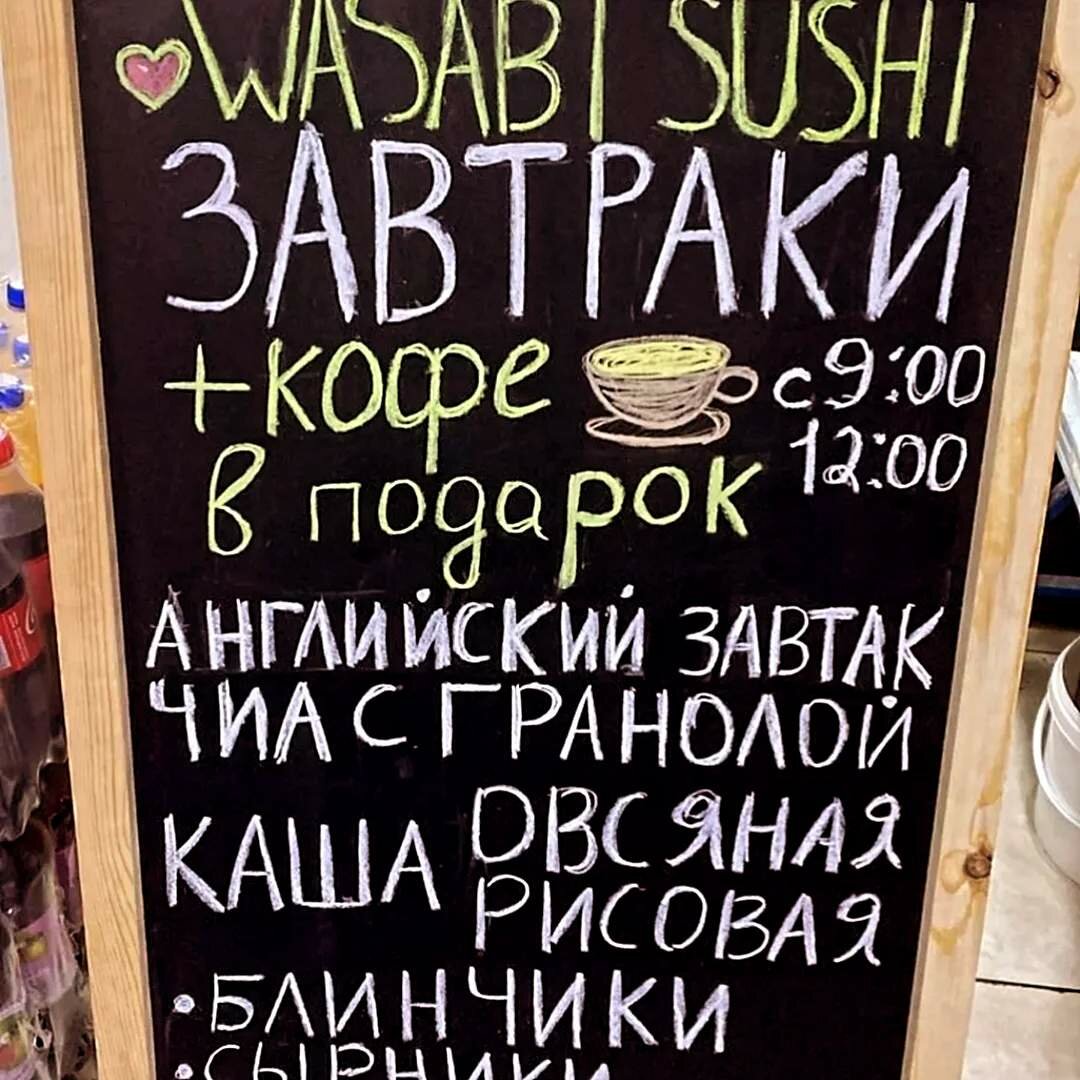 WASABI SUSHI
ЗАВТРАКИ
+кофе с 9:00
12:00
в подарок
АНГЛИЙСКИЙ ЗАВТАК
ЧИА С ГРАНОЛОЙ
КАША ОВСЯНАЯ
РИСОВАЯ
•БЛИНЧИКИ
•СЫРНИКИ